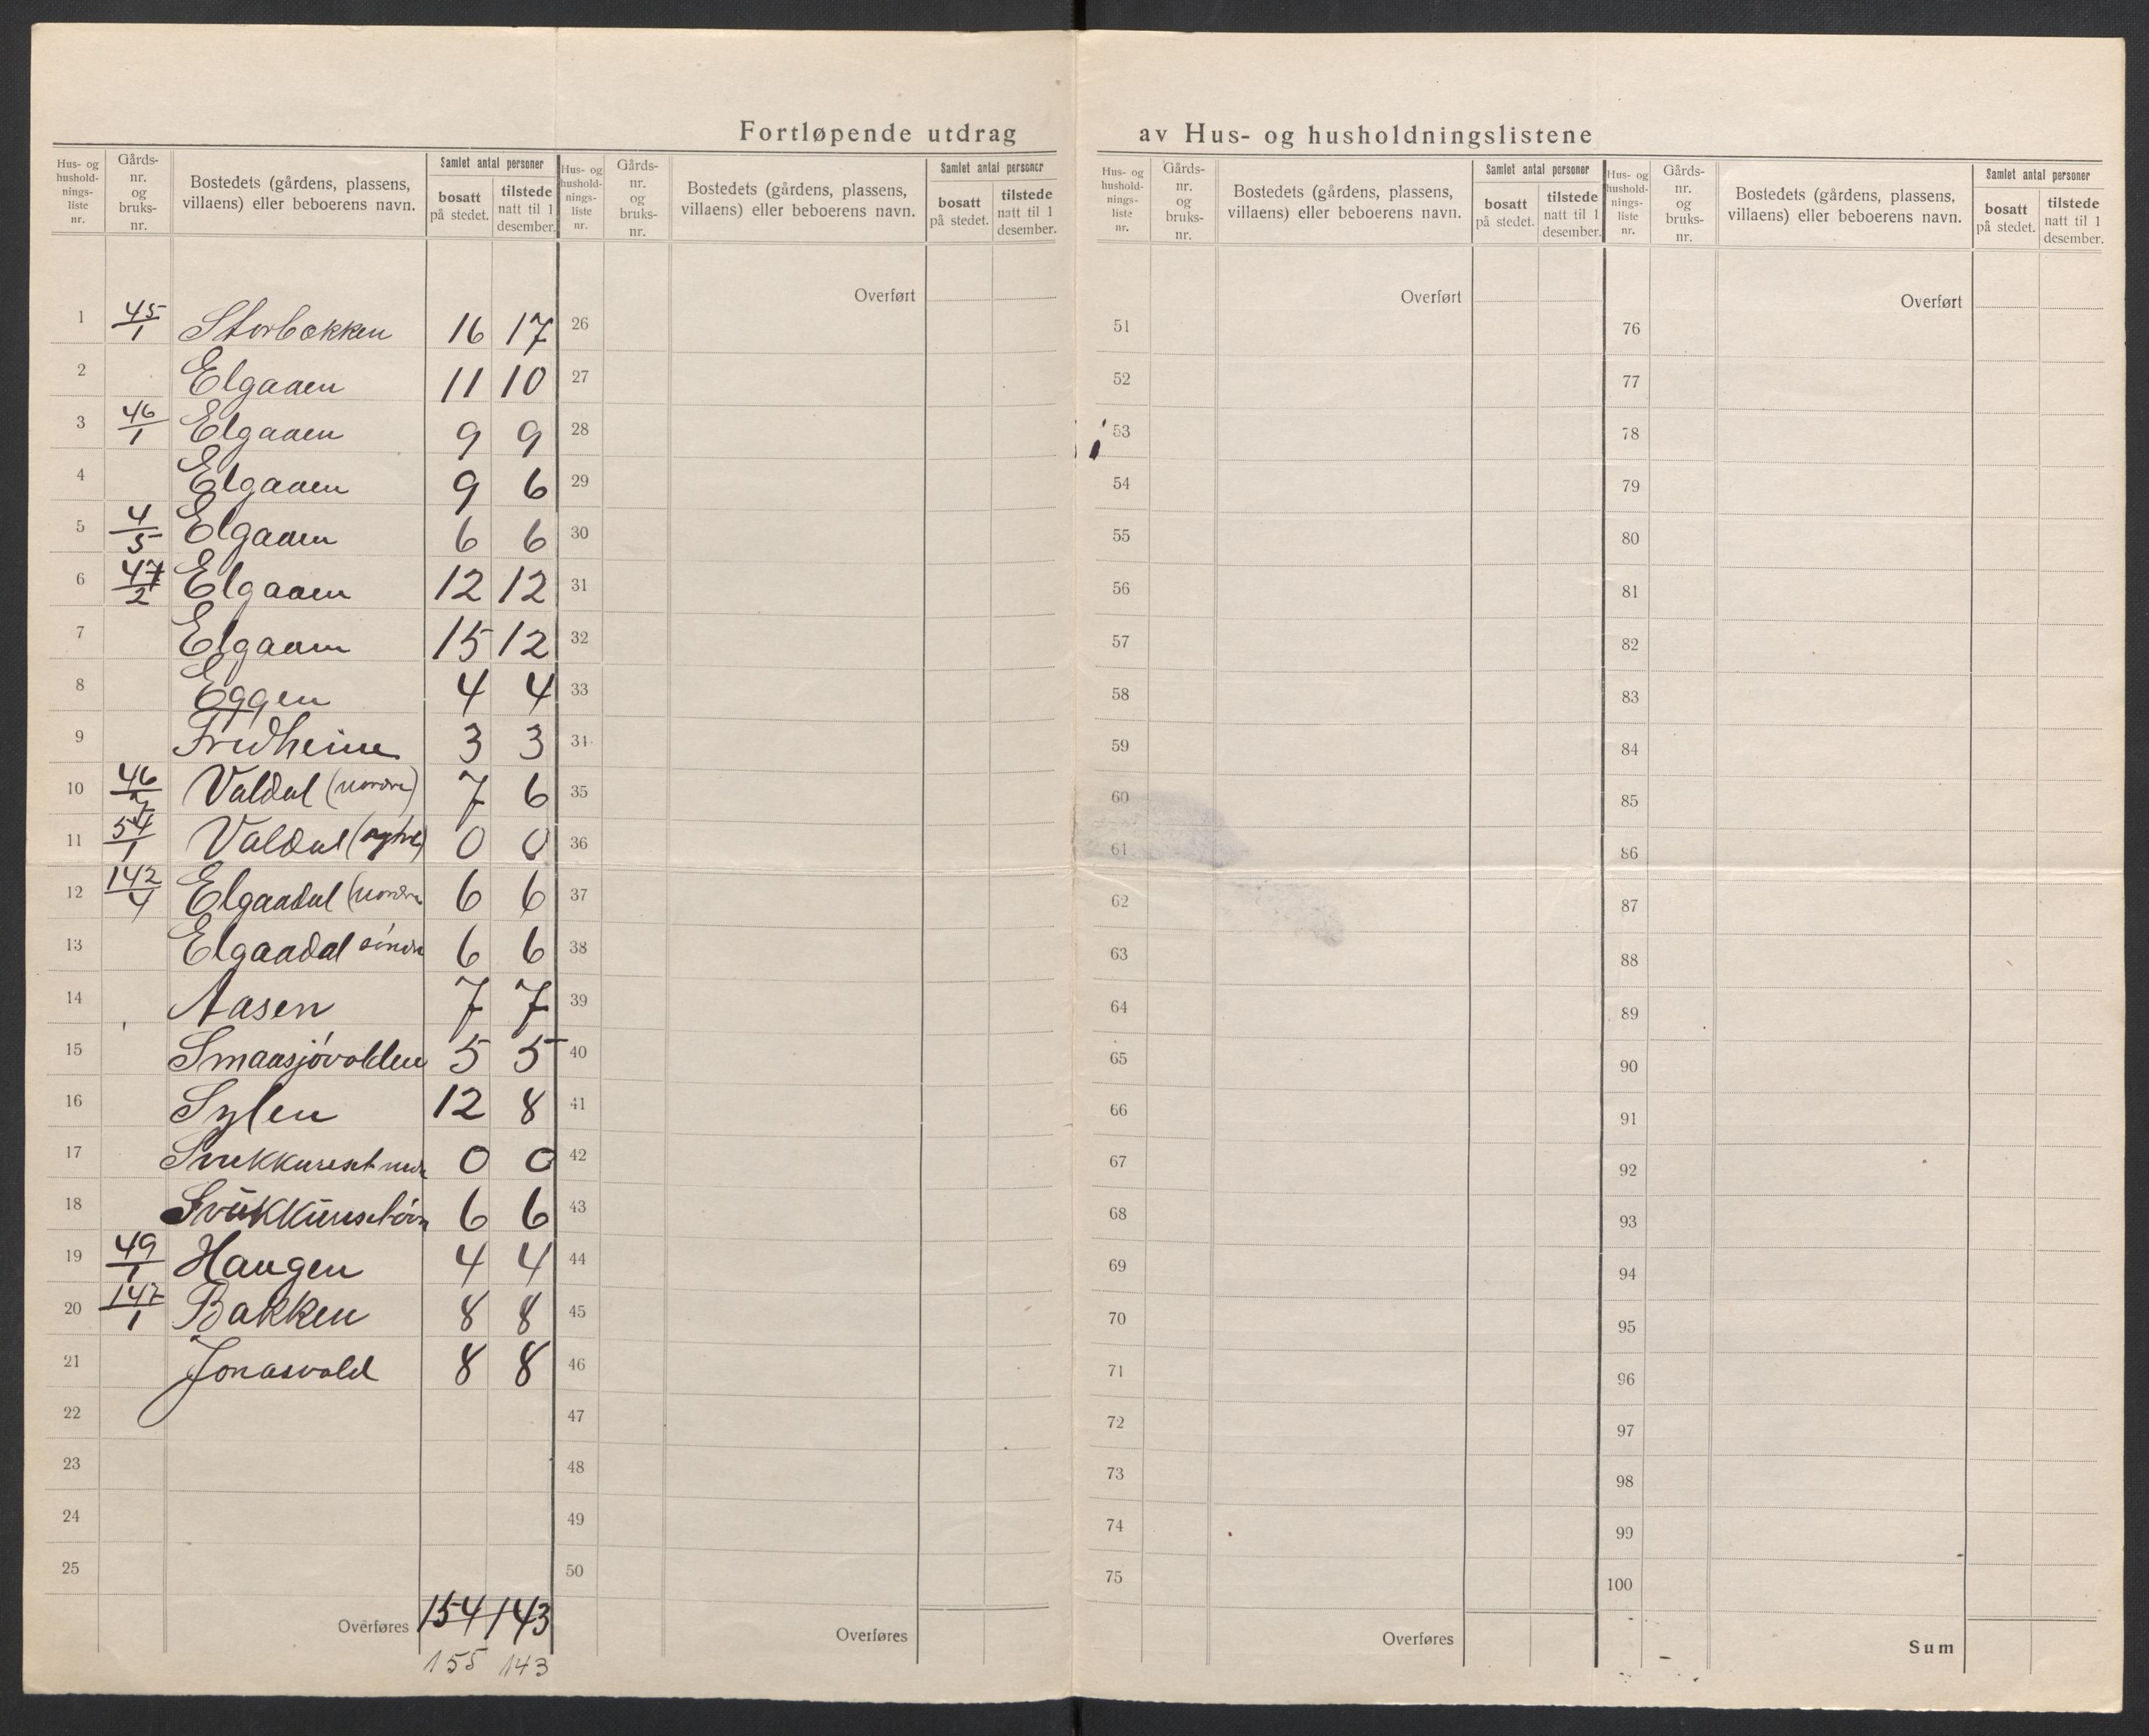 Fortløpende utdrag av Hus- og husholdningslistene
Hus- og hushold- nings- liste nr. | Gårds- nr. og bruks- nr. | Bostedets (gårdens, plassens, villaens) eller beboerens navn. | Samlet antal personer | bosatt på stedet. | tilstede natt til 1 desember.
Hus- og hushold- nings- liste nr. | Gårds- nr. og bruks- nr. | Bostedets (gårdens, plassens, villaens) eller beboerens navn. | Samlet antal personer | bosatt på stedet. | tilstede natt til 1 desember.
Hus- og hushold- nings- liste nr. | Gårds- nr. og bruks- nr. | Bostedets (gårdens, plassens, villaens) eller beboerens navn. | Samlet antal personer | bosatt på stedet. | tilstede natt til 1 desember.
Hus- og hushold- nings- liste nr. | Gårds- nr. og bruks- nr. | Bostedets (gårdens, plassens, villaens) eller beboerens navn. | Samlet antal personer | bosatt på stedet. | tilstede natt til 1 desember.
1 45/1 Storbekken 16 17
2 Elgaaen 11 10
3 46/1 Elgaaen 9 9
4 Elgaaen 9 6
5 4/5 Elgaaen 6 6
6 47/2 Elgaaen 12 12
7 Elgaaen 15 12
8 Eggen 4 4
9 Fredheim 3 3
10 46/ Valdal (nordre) 7 6
11 54/1 Valdal 0 0
12 142/4 Elgaadal (nordre 6 6
13 Elgaadal söndre 6 6
14 Aasen 7 7
15 Smaasjövolden 5 5
16 Sylen 12 8
17 Svukkuriset 0 0
18 6 6
19 49/1 Haugen 4 4
20 147/1 Bakken 8 8
21 Jonasvold 8 8
22
23
24
25
Overføres 154 143
155 143
Overført
26
27
28
29
30
31
32
33
34
35
36
37
38
39
40
41
42
43
44
45
46
47
48
49
50
Overføres
Overført
51
52
53
54
55
56
57
58
59
60
61
62
63
64
65
66
67
68
69
70
71
72
73
74
75
Overføres
Overført
76
77
78
79
80
81
82
83
84
85
86
87
88
89
90
91
92
93
94
95
96
97
98
99
100
Sum